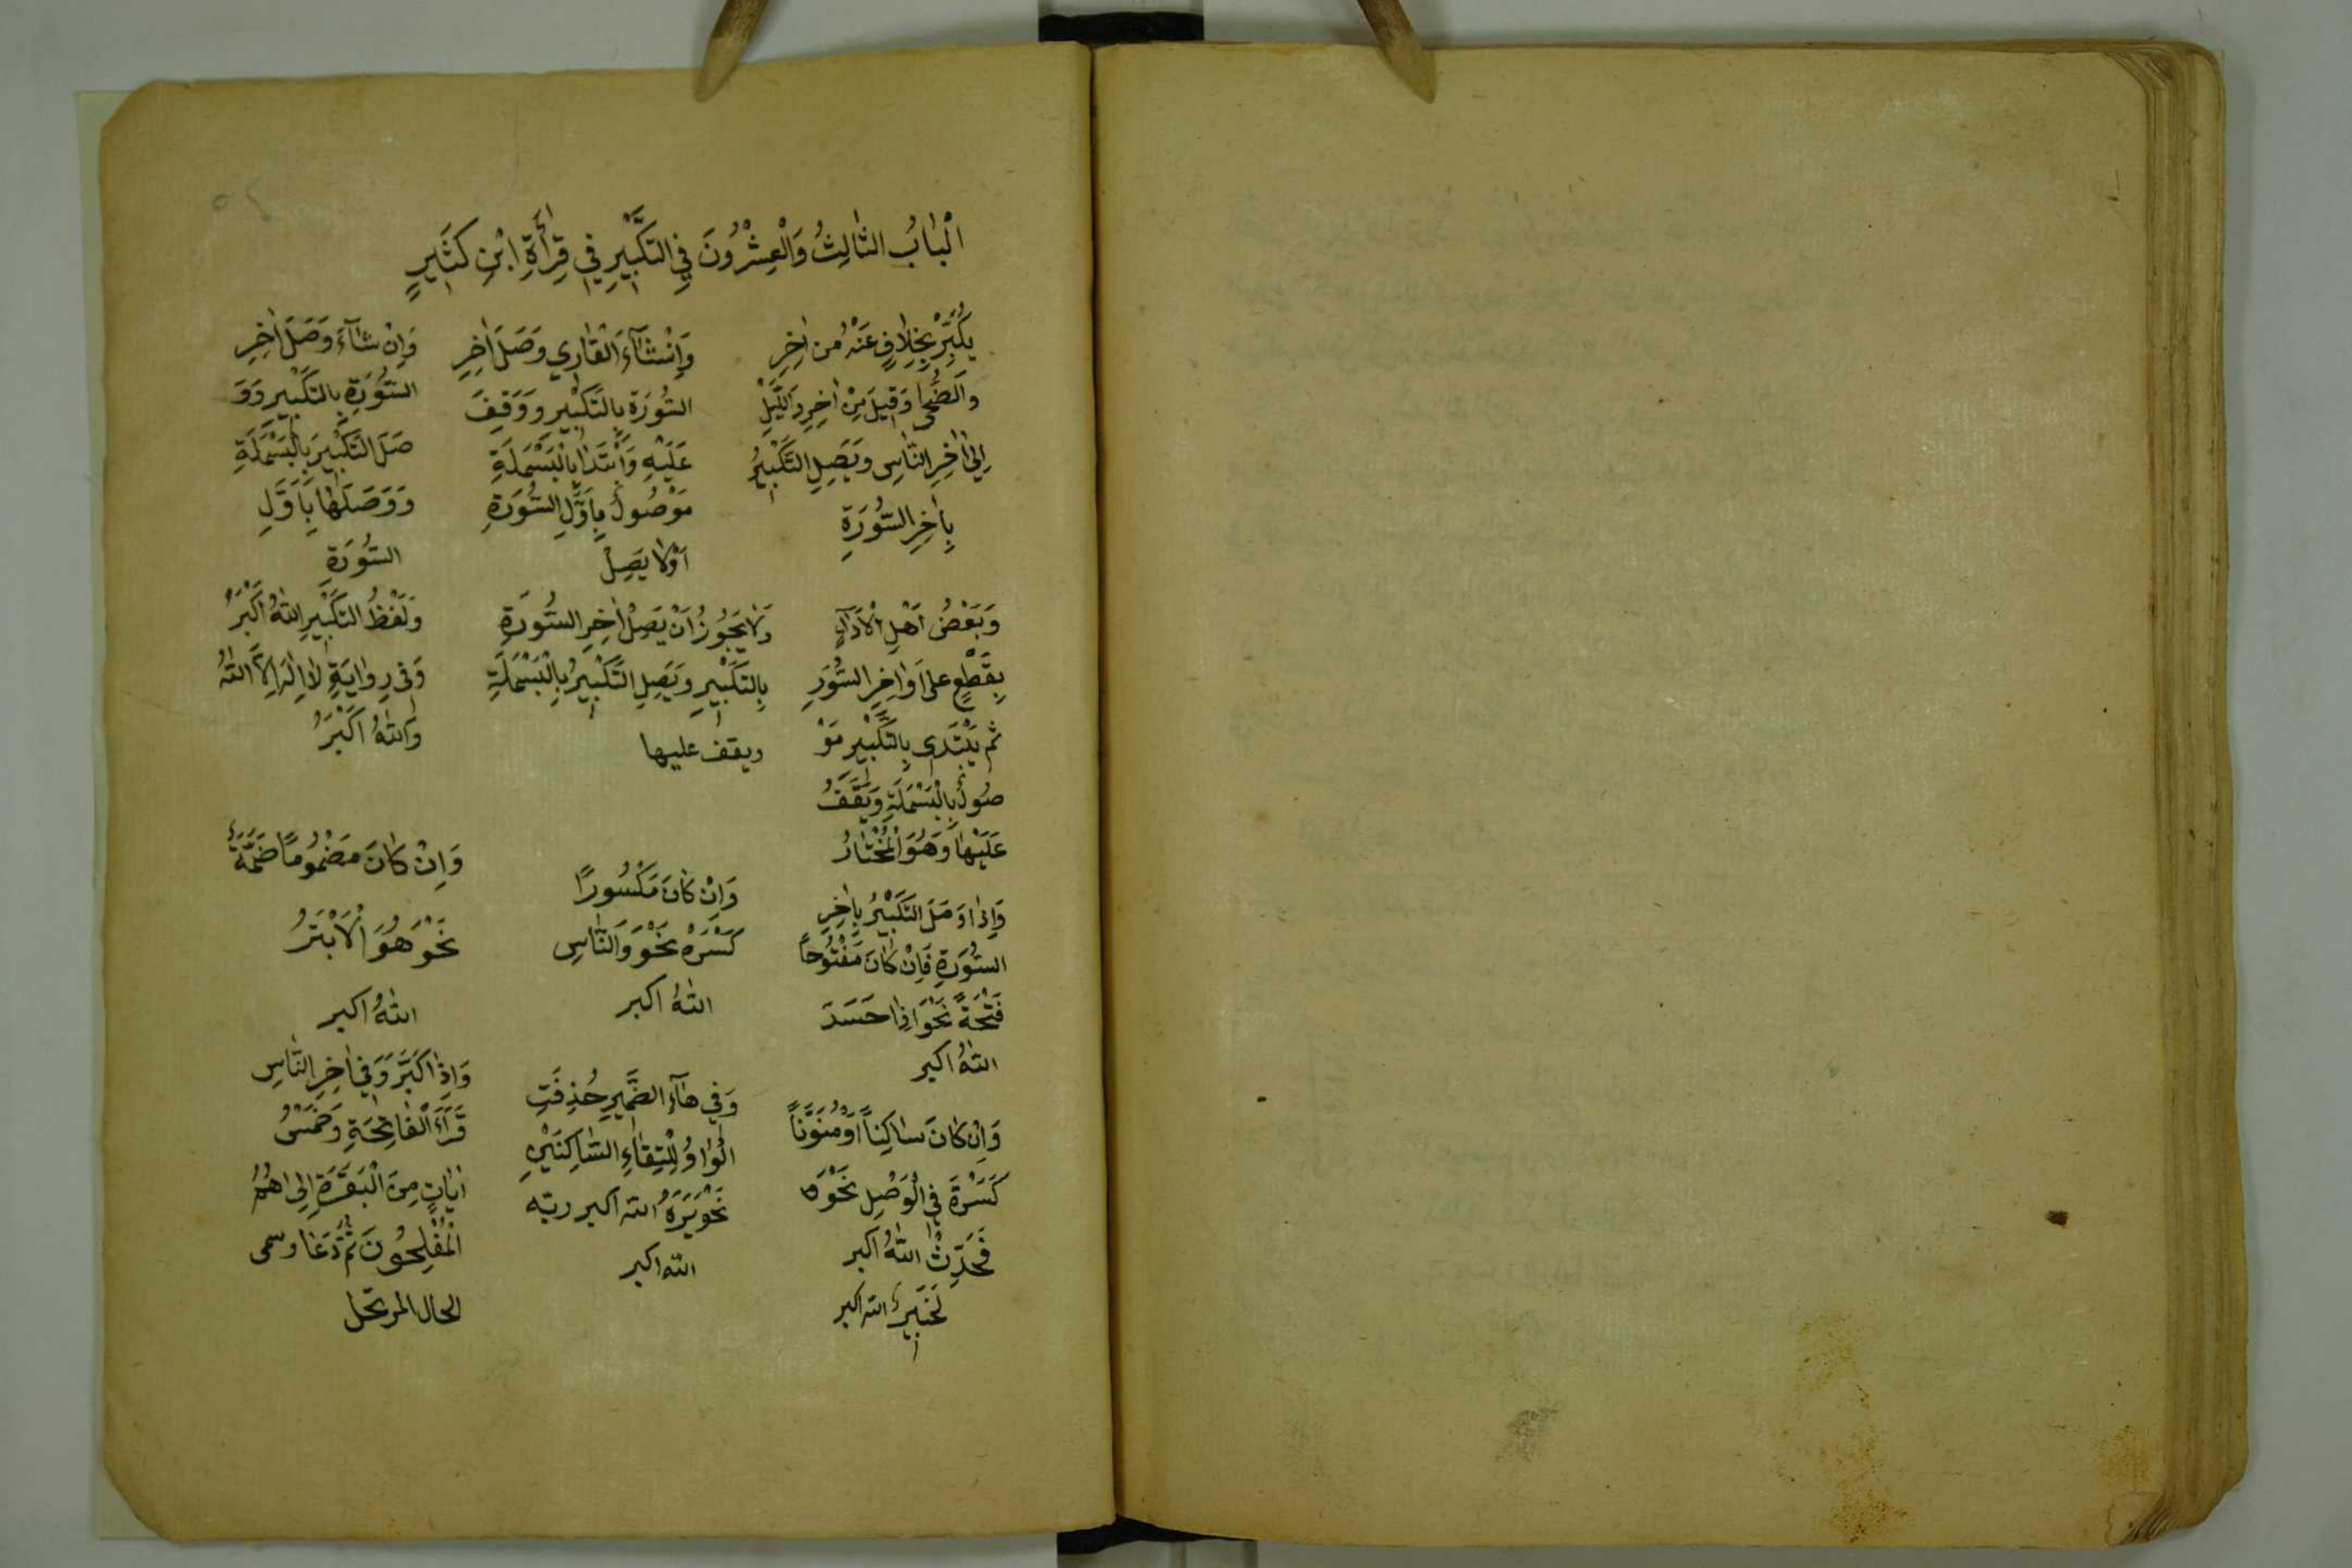 اَلْبَابُ الثَّالِثُ وَالْعِشْرُونَ فِي التَّكْبِيرِ فِي قِرَأَةِ ابْنِ كَثِيرٍ
يُكَبِّرُ بِخِلَافٍ عَنْهُ مِنْ اٰخِرِ
وَالضُّحٰى وَقِيلَ مِنْ اٰخِرِ وَاللَّيْلِ
اِلٰى اٰخِرِ النَّاسِ وَيَصِلِ التَّكْبِيرُ
بِاٰخِرِ السُّورَةِ
وَاِنْشَآءَ الْقَارِي وَصَلَ اٰخِرِ
السُّورَة بِالتَّكْبِيرِ وَوَقِفَ
عَلَيْهِ وَابْتَدَا بِالْبَسْمَلَةِ
مَوْصُولٌ بِاَوَّلِ السُّورَةِ
اَوْ لَا يَصِلْ
وَاِنْ شَآءَ وَصَلَ اٰخِرِ
السُّورَةِ بِالتَّكْبِيرِ وَوَ
صَلَ التَّكْبِيرَ بِالْبَسْمَلَةِ
وَوَصَلَهَا بِاَوَّلِ
السُّورَةِ
وَبَعْضُ اَهْلِ الْاَدَآءِ
بِقَطْعٍ عَلٰى اَوَاخِرِ السُّوَرِ
ثم يَبْتَدِى بِالتَّكْبِيرِ مَوْ
صُولٌ بِالْبَسْمَلَةِ وَيَقِفُ
عَلَيْهَا وَهُوَ الْمُخْتَارُ
وَلَا يَجُوزُ اَنْ يَصِلْ اٰخِرِ السُّورَةِ
بِالتَّكْبِيرِ وَيَصِلِ التَّكْبِيرُ بِالْبَسْمَلَةِ
ويقف عليها
وَلَفْظُ التَّكْبِيرِ اللّٰهُ اَكْبَرُ
وَفى رِوَايَةٍ لَا اِلٰهَ اِلَّا اللّٰهُ
وَاللّٰهُ اَكْبَرُ
وَاِذَا وَصَلَ التَّكْبِيرُ بِاٰخِرِ
السُّورَةِ فَاِنْ كَانَ مَفْتُوحًا
فَتْحَةً نَحْوَ اِذَا حَسَدَ
اللّٰهُ اكبر
وَاِنْ كَانَ مَكْسُورًا
كَسْرَةْ نَحْوَ وَالنَّاسِ
اللّٰهُ اكبر
وَاِنْ كَانَ مَضْمُومًا ضَمَّةً
نَحْوَ هُوَ الْاَبْتَرُ
اللّٰهُ اكبر
وَاِنْ كَانَ سَاكِنًا اَوْ مُنَوَّنًا
كَسَرْةَ فِي الْوَصْلِ نَحْوَ
فَحَدِّثْ اللّٰهُ اكبر
لَخَبِيرٌ اللّٰه اكبر
وَفِي هَآءِ الضَّمِيرِ حُذِفَتِ
الْوَاوُ لِلْتِقَاءِ السَّاكِنَيْنِ
نَحْوَ يَرَهُ اللّٰه اكبر ربّه
اللّٰه اكبر
وَاِذَا كَبَّرَ وَفِي اٰخِرِ النَّاسِ
قَرَأَ الْفَاتِحَةِ وَخَمْسُ
اٰيَاتٍ مِنَ الْبَقَرَةِ اِلٰى هُمُ
الْمُفْلِحُونَ ثُمَّ دَعَا وسمى
الحال المرتحل